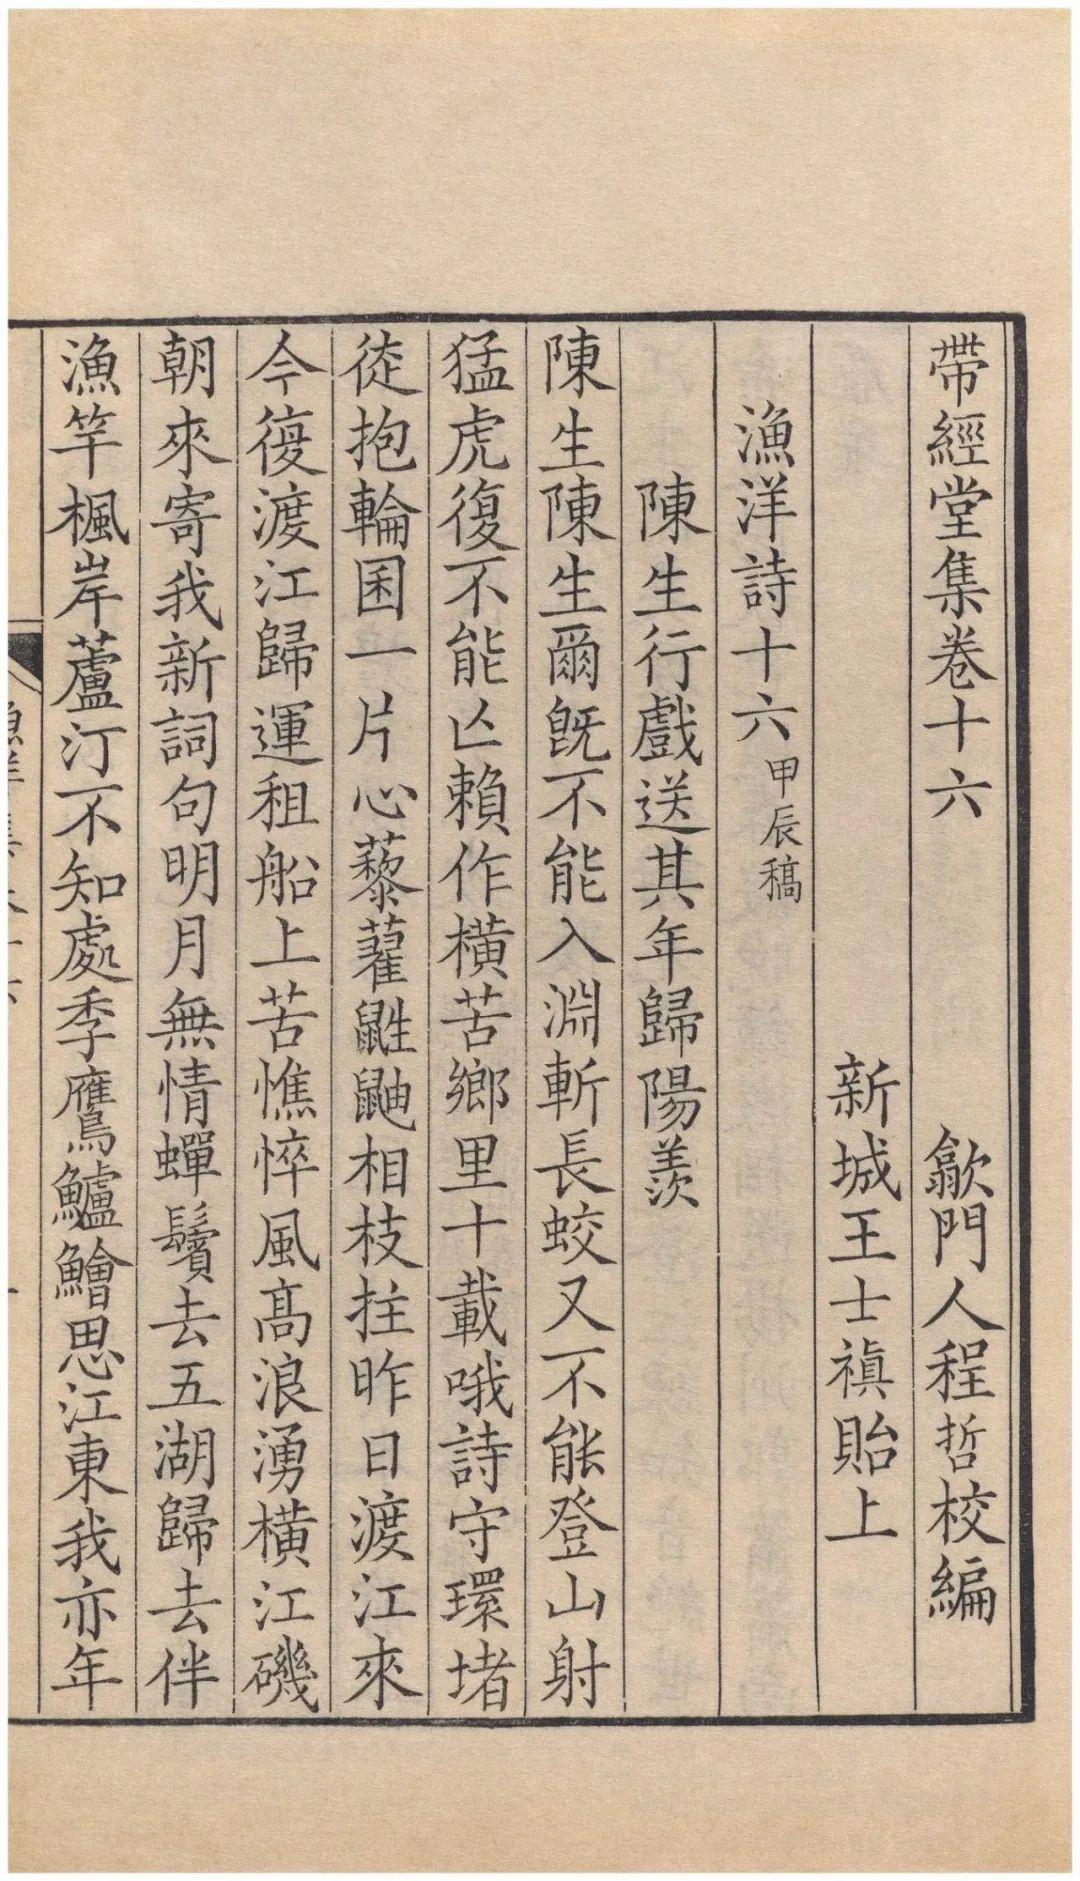 帶經堂集卷十六 歙門人程哲校編
新城王士禛貽上
漁洋詩十六 甲辰稿
陳生行戲送其年歸陽羨
陳生陳生爾旣不能入淵斬長蛟又不能登山射
猛虎復不能亾賴作橫苦鄉里十載哦詩守環堵
徒抱輪囷一片心藜藿鼪鼬相枝拄昨日渡江來
今復渡江歸運租船上苦憔悴風高浪湧橫江磯
朝來寄我新詞句明月無情蟬鬢去五湖歸去伴
漁竿楓岸蘆汀不知處季鷹鱸鱠思江東我亦年